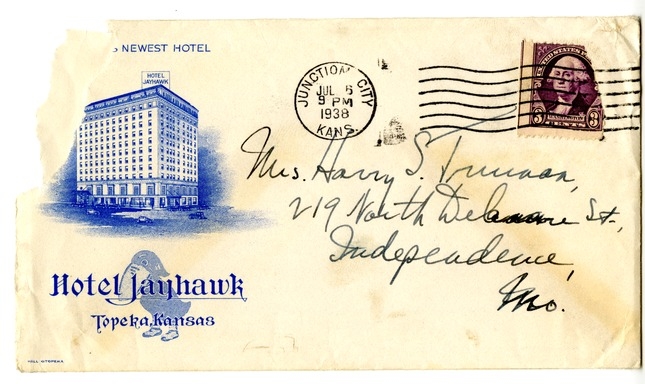 NEWEST HOTEL
HOTEL
JAYHAWK
JUNCTION CITY
JUL 6
9 PM
1938
KANS.
UNITED STATES
WASHINGTON
3 3
Mrs. Harry S. Truman,
219 North Delaware St.,
Independence,
Mo.
Hotel Jayhawk
Topeka, Kansas